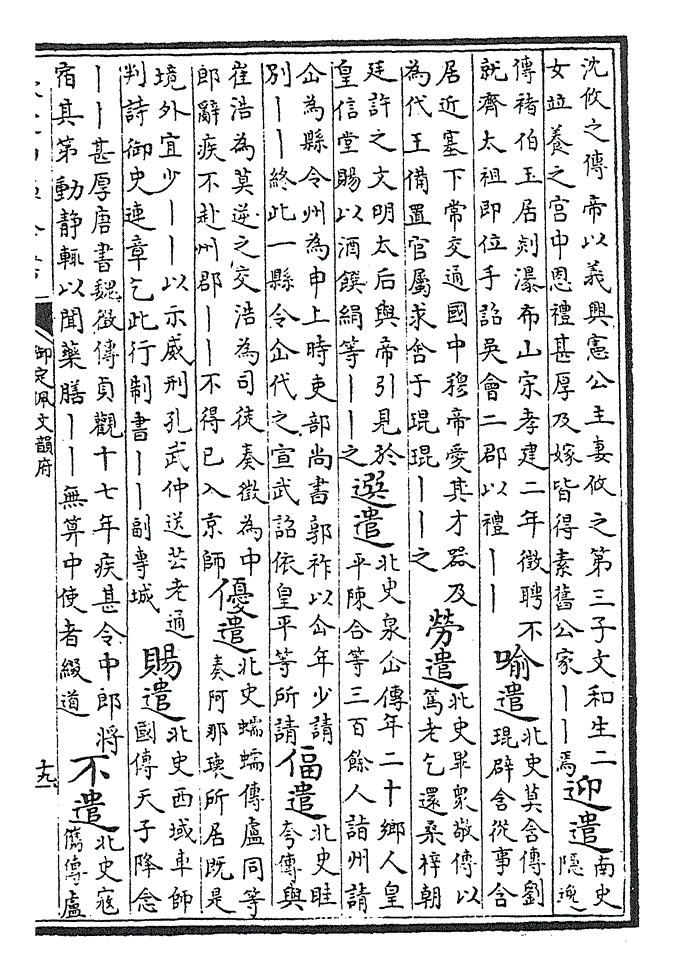 沈攸之傳帝以義興憲公主妻攸之第三子文和生二
女竝養之宮中恩禮甚厚及嫁皆得素舊公家丨丨焉
迎遣
南史
隱逸
傳褚伯玉居剡瀑布山宋孝建二年徵聘不
就齊太祖即位手詔吳會二郡以禮丨丨
喻遣
北史莫含傳劉
琨辟含從事含
居近塞下常交通國中穆帝愛其才器及
為代王備置官屬求含于琨琨丨丨之
勞遣
北史畢眾敬傳以
篤老乞還桑梓朝
廷許之文明太后與帝引見於
皇信堂賜以酒饌絹等丨丨之
選遣
北史泉仚傳年二十鄉人皇
平陳合等三百餘人詣州請
仚為縣令州為申上時吏部尚書郭祚以仚年少請
別丨丨終此一縣令仚代之宣武詔依皇平等所請
偪遣
北史眭
夸傳與
崔浩為莫逆之交浩為司徒奏徵為中
郎辭疾不赴州郡丨丨不得已入京師
優遣
北史蠕蠕傳盧同等
奏阿那瓌所居既是
境外宜少丨丨以示威刑孔武仲送芸老通
判詩御史連章乞此行制書丨丨副專城
賜遣
北史西域車師
國傳天子降念
丨丨甚厚唐書魏徵傳貞觀十七年疾甚令中郎將
宿其第動靜輒以聞藥膳丨丨無算中使者綴道
不遣
北史寇
儁傳盧
御定佩文韻府
十九